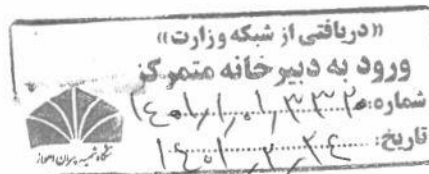 ((دریافتی از شبکه وزارت))
ورود به دبیرخانه متمرکز
شماره: ۱۴۰۱/۱۰۱/۳۳۲۰
تاریخ: ۱۴۰۱/۲/۲۴
دانشگاه شهید چمران اهواز